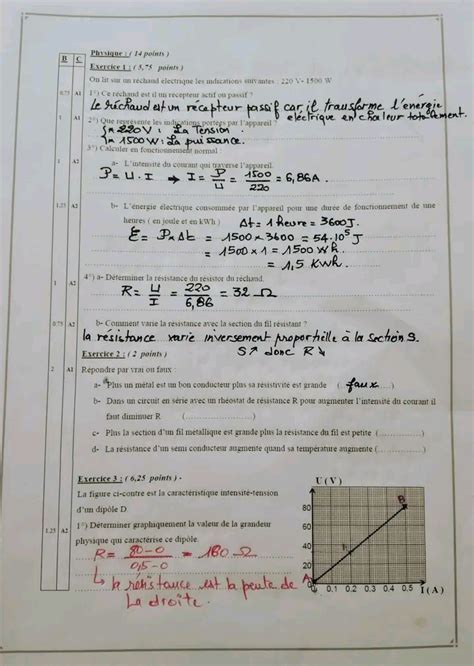 B C Physique : ( 14 points )
Exercice 1 : ( 5,75 points )
On lit sur un rechaud électrique les indications suivantes : 220 V- 1500 W
0.75 A1 1°) Ce rechaud est il un recepteur actif ou passif ?
Le réchaud est un récepteur passif car il transforme l'énergie
électrique en chaleur totalement.
1 A1 2°) Que représente les indications portées par l'appareil ?
220V : La Tension.
1500W : La puissance.
3°) Calculer en fonctionnement normal :
1 A2 a- L'intensité du courant qui traverse l'appareil.
P = U . I → I = P/U = 1500/220 = 6,86A.
1.25 A2 b- L'énergie électrique consommée par l'appareil pour une durée de fonctionnement de une
heures ( en joule et en kWh ) Δt = 1 heure = 3600
E = P x Δt = 1500 x 3600 = 54.10⁵ J
= 1500 x 1 = 1500 Wh.
= 1,5 KWh.
1 A2 4°) a- Déterminer la résistance du résistor du réchaud.
R = U/I = 220/6,86 = 32 Ω
0.75 A2 b- Comment varie la résistance avec la section du fil résistant ?
la résistance varie inversement proportielle à la section S.
S ↗ donc R ↘
Exercice 2 : ( 2 points )
2 A1 Répondre par vrai ou faux :
a- Plus un métal est un bon conducteur plus sa résistivité est grande (faux....)
b- Dans un circuit en série avec un rhéostat de résistance R pour augmenter l'intensité du courant il
faut diminuer R (..............)
c- Plus la section d'un fil metallique est grande plus la résistance du fil est petite (............)
d- La résistance d'un semi conducteur augmente quand sa température augmente (............)
Exercice 3 : ( 6,25 points) -
La figure ci-contre est la caractéristique intensité-tension
d'un dipôle D.
1.25 A2 1°) Déterminer graphiquement la valeur de la grandeur
physique qui caractérise ce dipôle.
R = 80-0/0,5-0 = 160 Ω
↳ la résistance est la pente de
La droite.
U ( V )
B
80
60
40
20
A
0 0.1 0.2 0.3 0.4 0.5 I ( A )